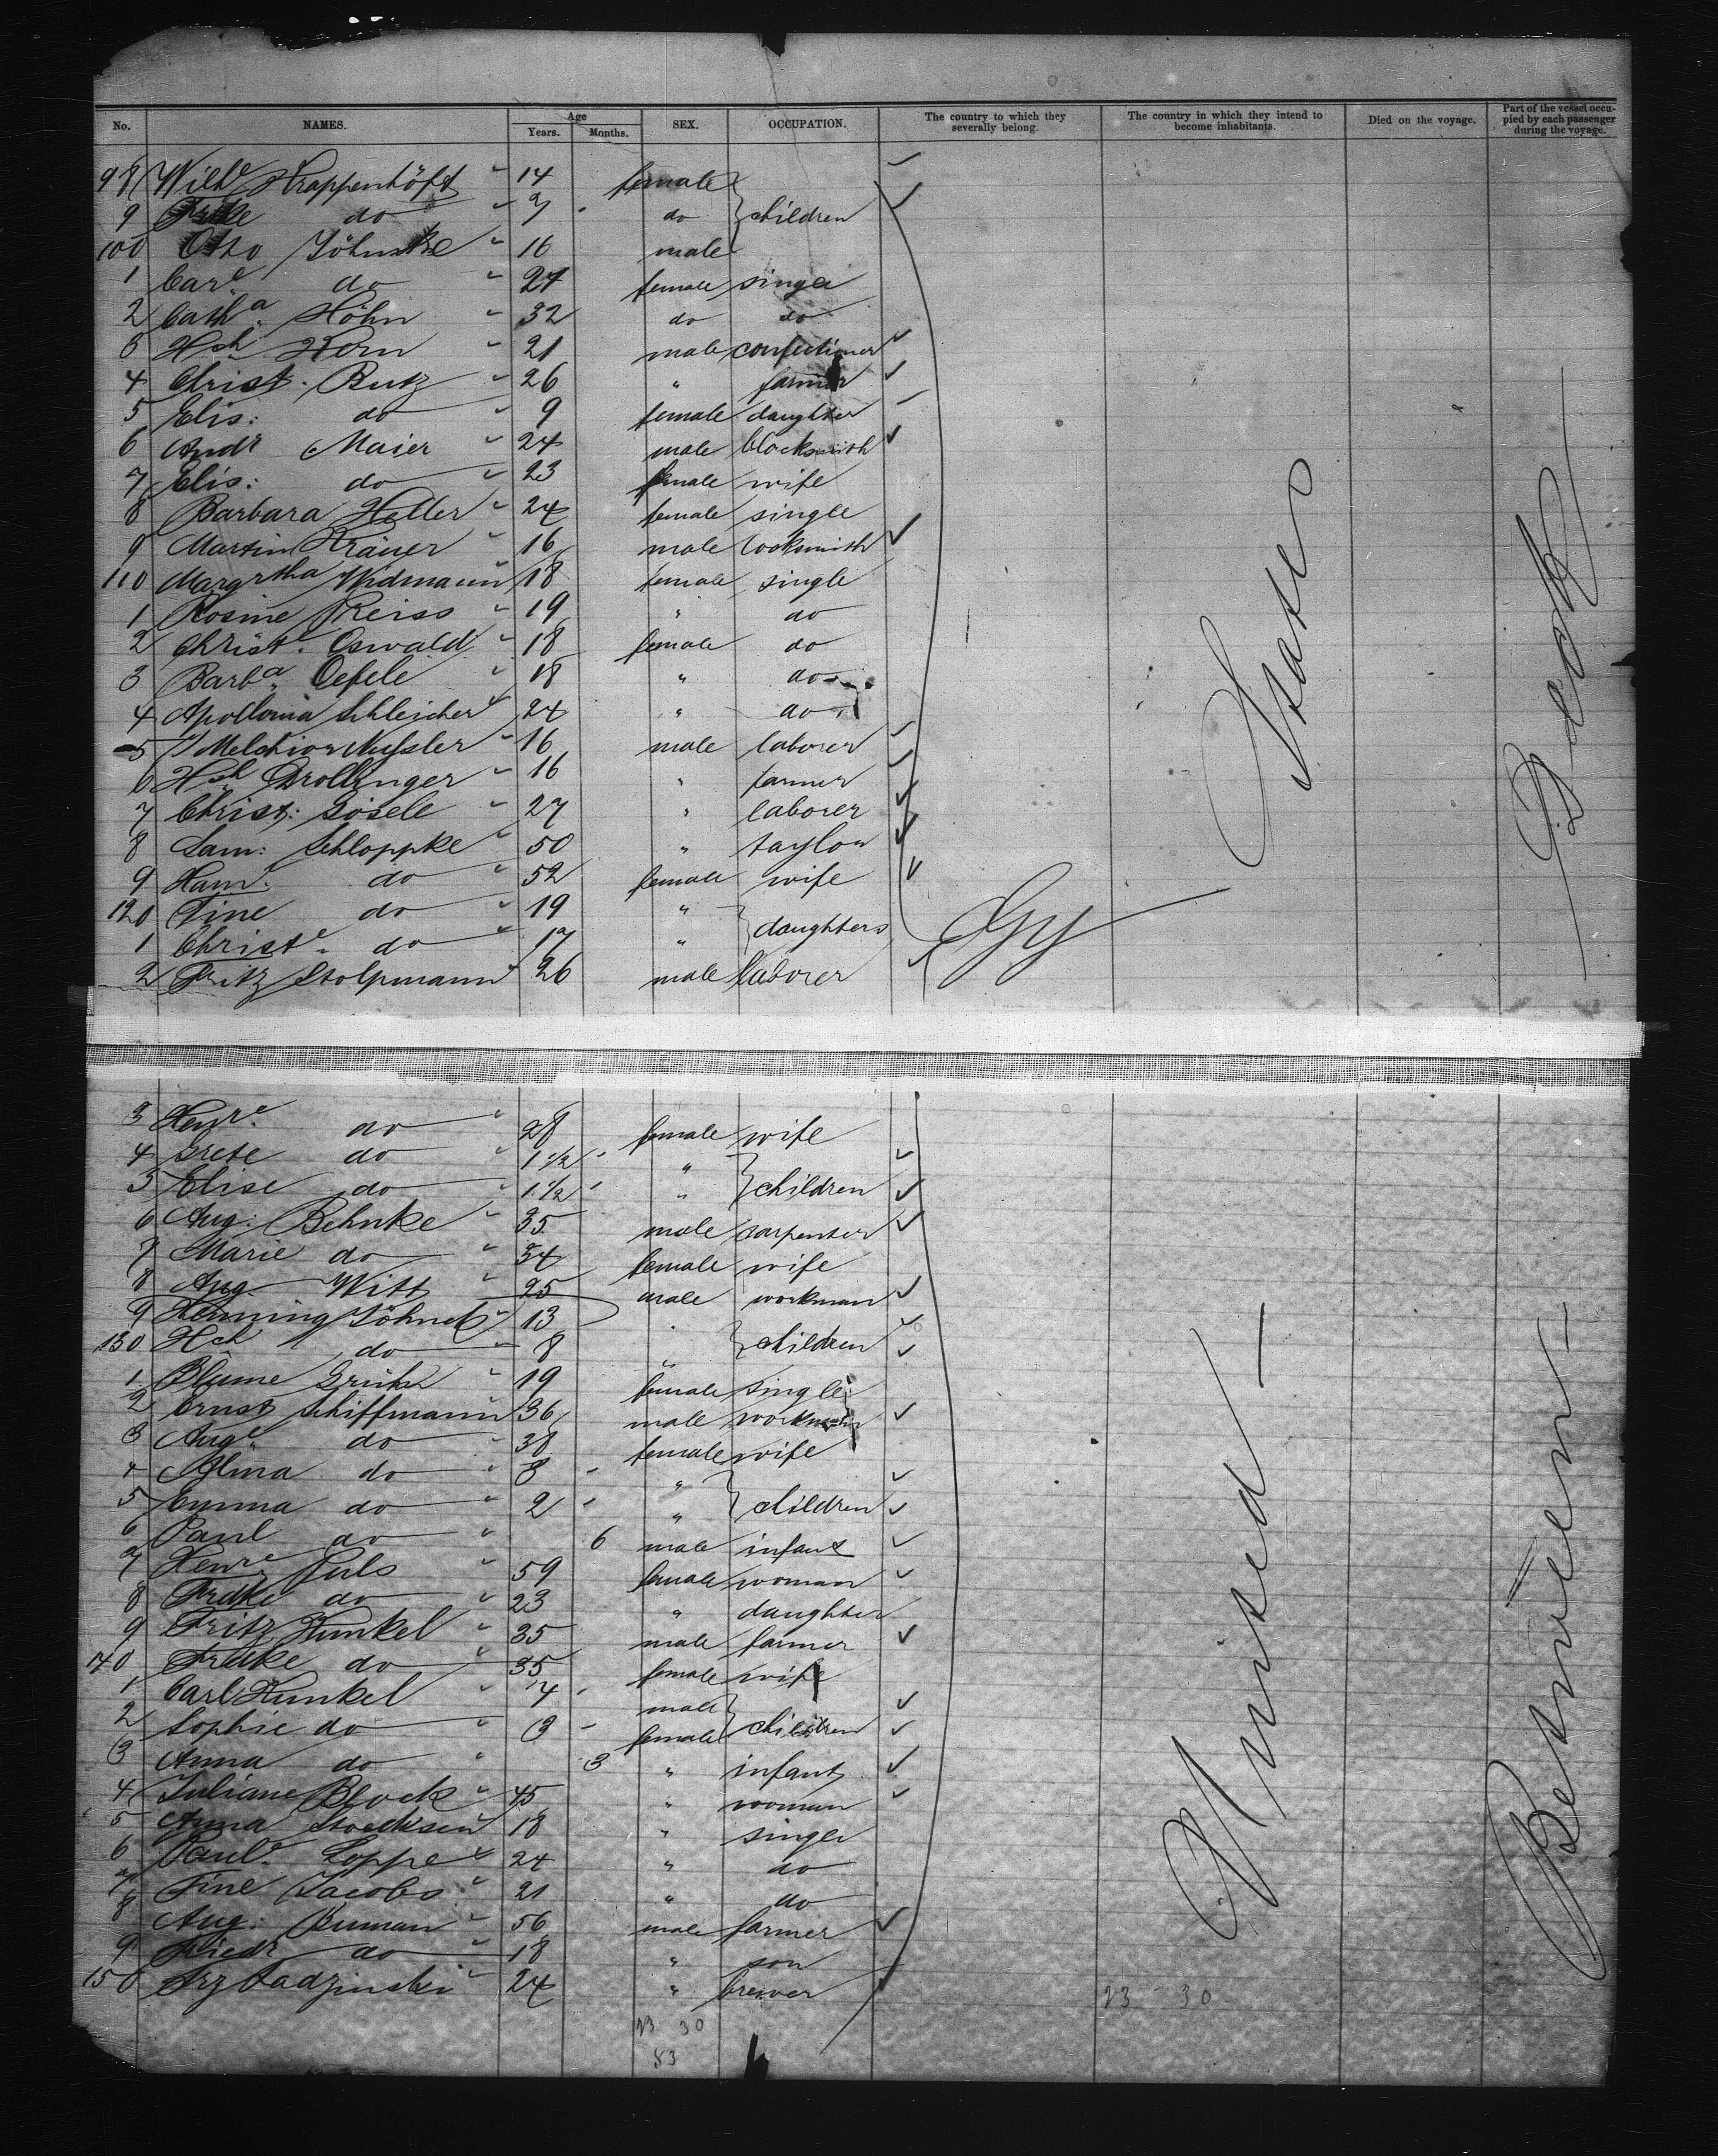 No. NAMES. Age Years. Months. SEX. OCCUPATION. The country to which they severally belong. The country in which they intend to become inhabitants. Died on the voyage. Part of the vessel occupied by each passenger during the voyage.
98 Wilhe Krappenhöft " 14 female
9 Frdke do " 7 do } children
100 Otto Jöhncke " 16 male
1 Care. do " 24 female single
2 Catha. Höhn " 32 do do
3 Hch Korn " 21 male confectioner
4 Christ. Butz " 26 " farmer
5 Elis: do " 9 female daughter
6 Andr Maier " 24 male blocksmith
7 Elis: do " 23 female wife
8 Barbara Heller " 24 female single
9 Martin Kräuer " 16 male locksmith
110 Margrtha Widmann 18 female single
1 Rosine Reiss " 19 " do
2 Christe. Oswald " 18 female do
3 Barba. Oefele " 18 " do
4 Apollonia Schleicher " 24 " do
5 Melchior Nussler " 16 male laborer
6 Hch Drollinger " 16 " farmer
7 Christ: Gösele " 27 " laborer
8 Sam: Schloppke " 50 " taylor
9 Hane. do " 52 female wife
120 Tine do " 19 " } daughters
1 Christe. do " 17 "
2 Fritz Stolpmann " 26 male laborer
Gy
3 Henre. do " 28 female wife
4 Grete do " 1 1/2 " } children
5 Elise do " 1 1/2 "
6 Aug: Behnke " 35 male carpenter
7 Marie do " 34 female wife
8 Aug. Witt " 25 male workman
9 Henning Jöhnck " 13 " } children
130 Hch do " 8 "
1 Blume Grühn " 19 female single
2 Ernst Schiffmann 36 male workman
3 Auge. do " 38 female wife
4 Alma do " 8 " } children
5 Emma do " 2 "
6 Paul do " 6 male infant
7 Henre. Puls " 59 female woman
8 Frdke do " 23 " daughter
9 Fritz Kunkel " 35 male farmer
140 Frdke do " 35 female wife
1 Carl Kunkel " 4 male } children
2 Sophie do " 3 female
3 Anna do " 3 " infant
4 Juliane Block " 45 " woman
5 Anna 18 " single
6 Paule. Loppe " 24 " do
7 Tine Jacobs " 21 " do
8 Aug: Buman " 56 male farmer
9 Friedr do " 18 " son
150 Frz Radzinski " 24 " brewer
23 30
53
23 30
United States
Between Deck